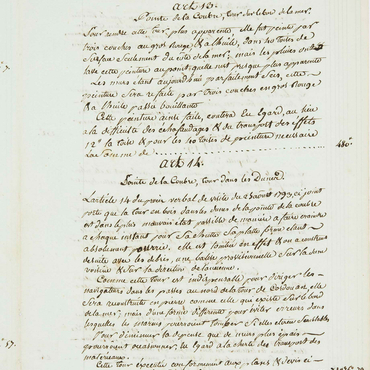 art. 13.
Pointe de la Coubre, tour sur le bord de la mer.
Pour rendre cette tour plus apparente, elle fut peinte par
trois couches au gros rouge, & à l'huile, dans les toises de
surface seulement du côté de la mer; mais les pluies ont
lavé cette peinture au point qu'elle n'est presque plus apparente
Les murs étant aujourd'hui parfaitement secs, cette
peinture sera refaite par trois couches en gros rouge
& à l'huile passée bouillante
Cette peinture ainsi faite, coûtera Eu Egard, au lieu
à la difficulté des échafaudages & du transport des effets
12# la toise & pour les 40 toises de peinture nécessaire
La Somme de 480#
art. 14.
Pointe de la Coubre, tour dans les Dunes.
L'article 14 du procès verbal de visite du 23 août 1793, ci joint
porte que la tour en bois dans les dunes de la pointe de la coubre
est dans le plus mauvais état possible de manière à faire craindre
à chaque instant pour sa chutte sa platte forme étant
absolument pourrie. elle est tombée en effet & on a construit
de suite avec les débris, une balise provisionnelle sur la dune
voisine & sur la direction de l'ancienne.
Comme cette tour est indispensable pour diriger les
navigateurs dans les passes au nord de la tour de Cordouan, elle
sera reconstruite en pierre comme celle qui existe sur le bord
de la mer, mais d'une forme différente pour éviter erreurs dans
lesquelles les marins pourroient tomber si elles étoient semblables
Pour diminuer la dépense que les murs plus épais
pourroient occasionner, Eu Egard à la cherté des transports des
matériaux.
Cette tour exécutée conformément aux plans & devis ci